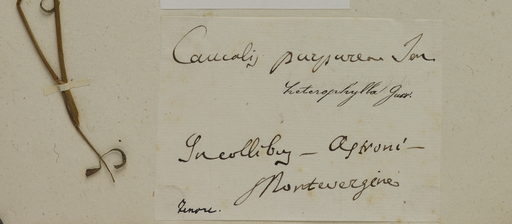 Caucalis purpurea Ten
heterophylla Guss.
In collibus – Astroni –
Montevergine
Tenore.